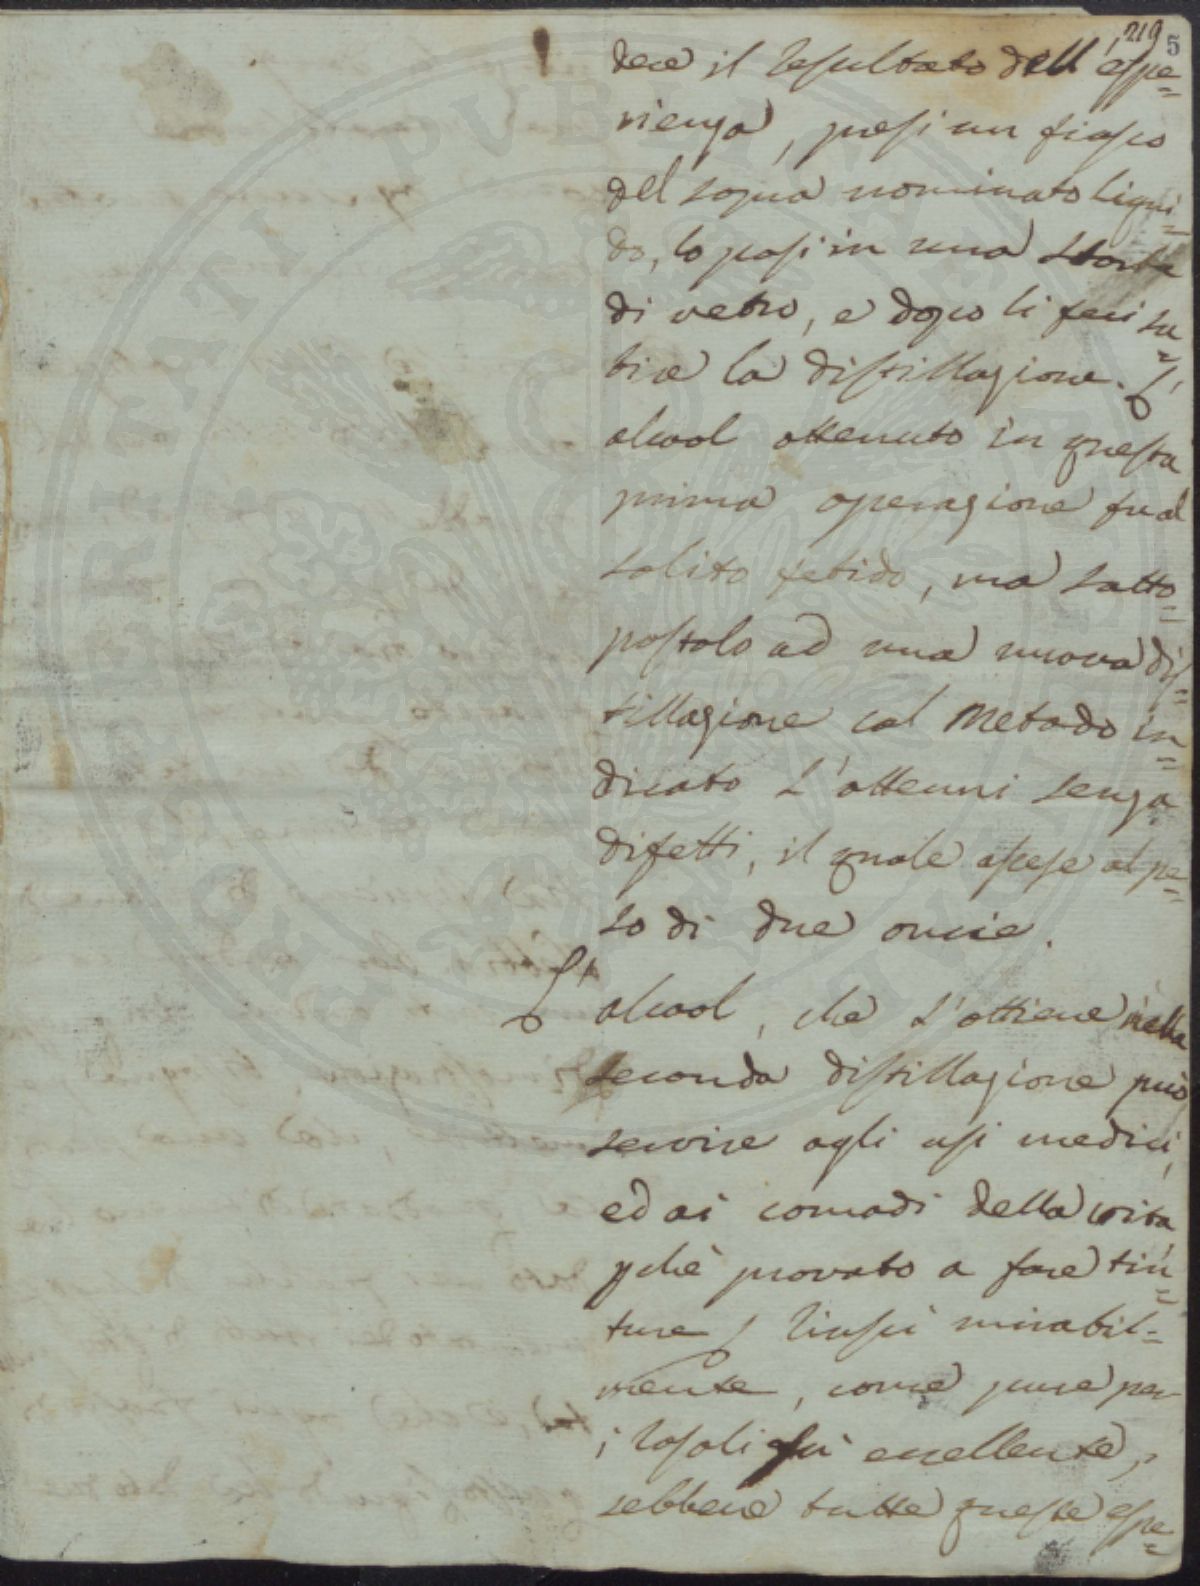 219 5
dere il resultato dell'espe=
rienza, presi un fiasco
del sopra nominato liqui=
do, lo posi in una storta
di vetro, e dopo li feci su=
bire la distillazione. L'
alcool ottenuto in questa
prima operazione fu al
solito fetido, ma sotto=
postolo ad una nuova dis=
tillazione col metodo in=
dicato l'ottenni senza
difetti, il quale ascese al pe=
so di due oncie.
L'alcool, che s'ottiene nella
seconda distillazione può
servire agli usi medici,
ed ai comodi della vita,
pchè provato a fare tin=
ture, riuscì mirabil=
mente, come pure per
i rosoli fu eccellente,
sebbene tutte queste espe=
PROSPERITATI PUBLICAE AUGENDAE